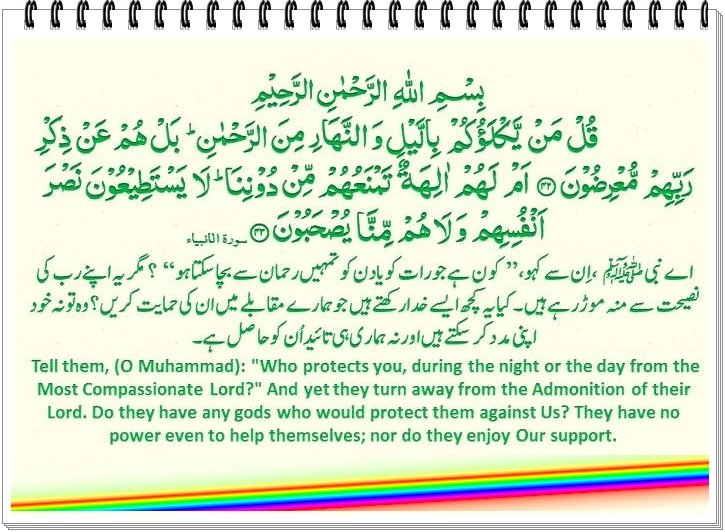 بِسْمِ اللهِ الرَّحْمٰنِ الرَّحِيْمِ
قُلْ مَنْ يَّكْلَؤُكُمْ بِالَّيْلِ وَ النَّهَارِ مِنَ الرَّحْمٰنِ ؕ بَلْ هُمْ عَنْ ذِكْرِ
رَبِّهِمْ مُّعْرِضُوْنَ ﴿۴۲﴾ اَمْ لَهُمْ اٰلِهَةٌ تَمْنَعُهُمْ مِّنْ دُوْنِنَا ؕ لَا يَسْتَطِيْعُوْنَ نَصْرَ
اَنْفُسِهِمْ وَ لَا هُمْ مِّنَّا يُصْحَبُوْنَ ﴿۴۳﴾ سورۃ الانبیاء
اے نبی ﷺ ، اِن سے کہو، ”کون ہے جو رات کو یا دن کو تمہیں رحمان سے بچا سکتا ہو“ ؟ مگر یہ اپنے رب کی
نصیحت سے منہ موڑ رہے ہیں۔ کیا یہ کچھ ایسے خدا رکھتے ہیں جو ہمارے مقابلے میں ان کی حمایت کریں؟ وہ تو نہ خود
اپنی مدد کر سکتے ہیں اور نہ ہماری ہی تائید اُن کو حاصل ہے۔
Tell them, (O Muhammad): "Who protects you, during the night or the day from the
Most Compassionate Lord?" And yet they turn away from the Admonition of their
Lord. Do they have any gods who would protect them against Us? They have no
power even to help themselves; nor do they enjoy Our support.